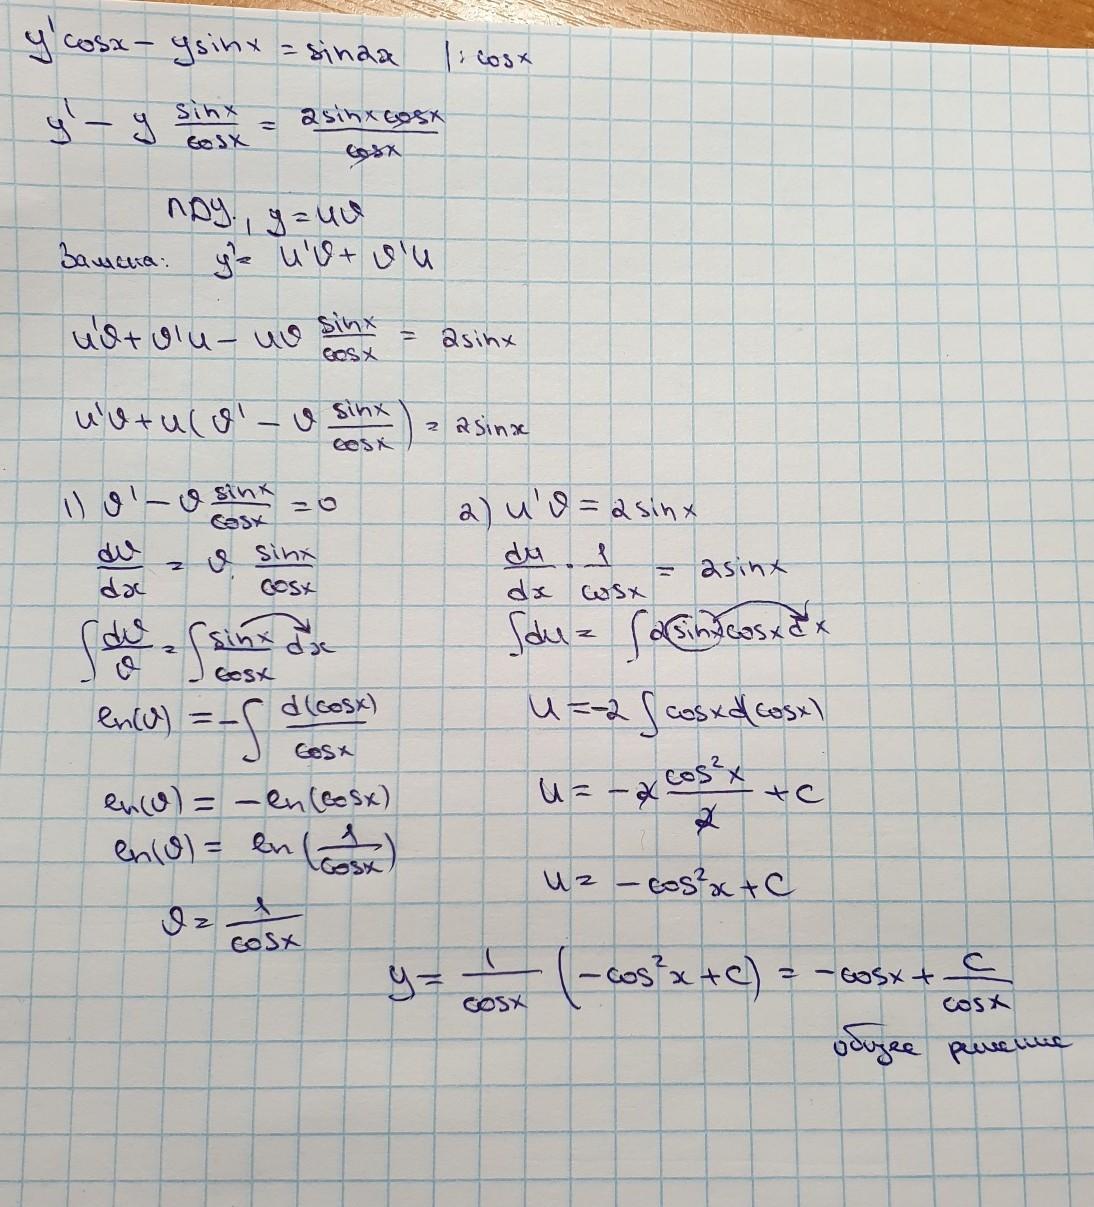 y' cosx - y sinx = sin2x |: cosx
y' - y sinx/cosx = 2sinx cosx/cosx
ЛДУ, y = uϑ
Замена: y' = u'ϑ + ϑ'u
u'ϑ + ϑ'u - uϑ sinx/cosx = 2sinx
u'ϑ + u(ϑ' - ϑ sinx/cosx) = 2sinx
1) ϑ' - ϑ sinx/cosx = 0
dϑ/dx = ϑ sinx/cosx
∫ dϑ/ϑ = ∫ sinx/cosx dx
ln(ϑ) = -∫ d(cosx)/cosx
ln(ϑ) = -ln(cosx)
ln(ϑ) = ln(1/cosx)
ϑ = 1/cosx
2) u'ϑ = 2sinx
du/dx · 1/cosx = 2sinx
∫du = ∫2sinx cosx dx
u = -2 ∫ cosx d(cosx)
u = -2 cos²x/2 + c
u = -cos²x + C
y = 1/cosx (-cos²x + C) = -cosx + C/cosx
общее решение